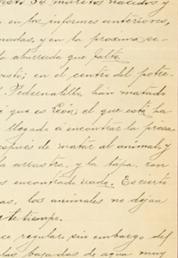 de muertos nacidos y
en los informes anteriores,
nadas, y en la proxima se-
la aburrada que falta.
en el centro del potre-
Pedernalillo han matado
que es León, el que está ha
llegado a encontrar la presa
espues de matar el animal y
la arrastra, y la tapa. Con
encontrado nada. Es cierto
as, los animales no dejan
te tiempo.
se regular sin embargo del
las bajadas de agua muy